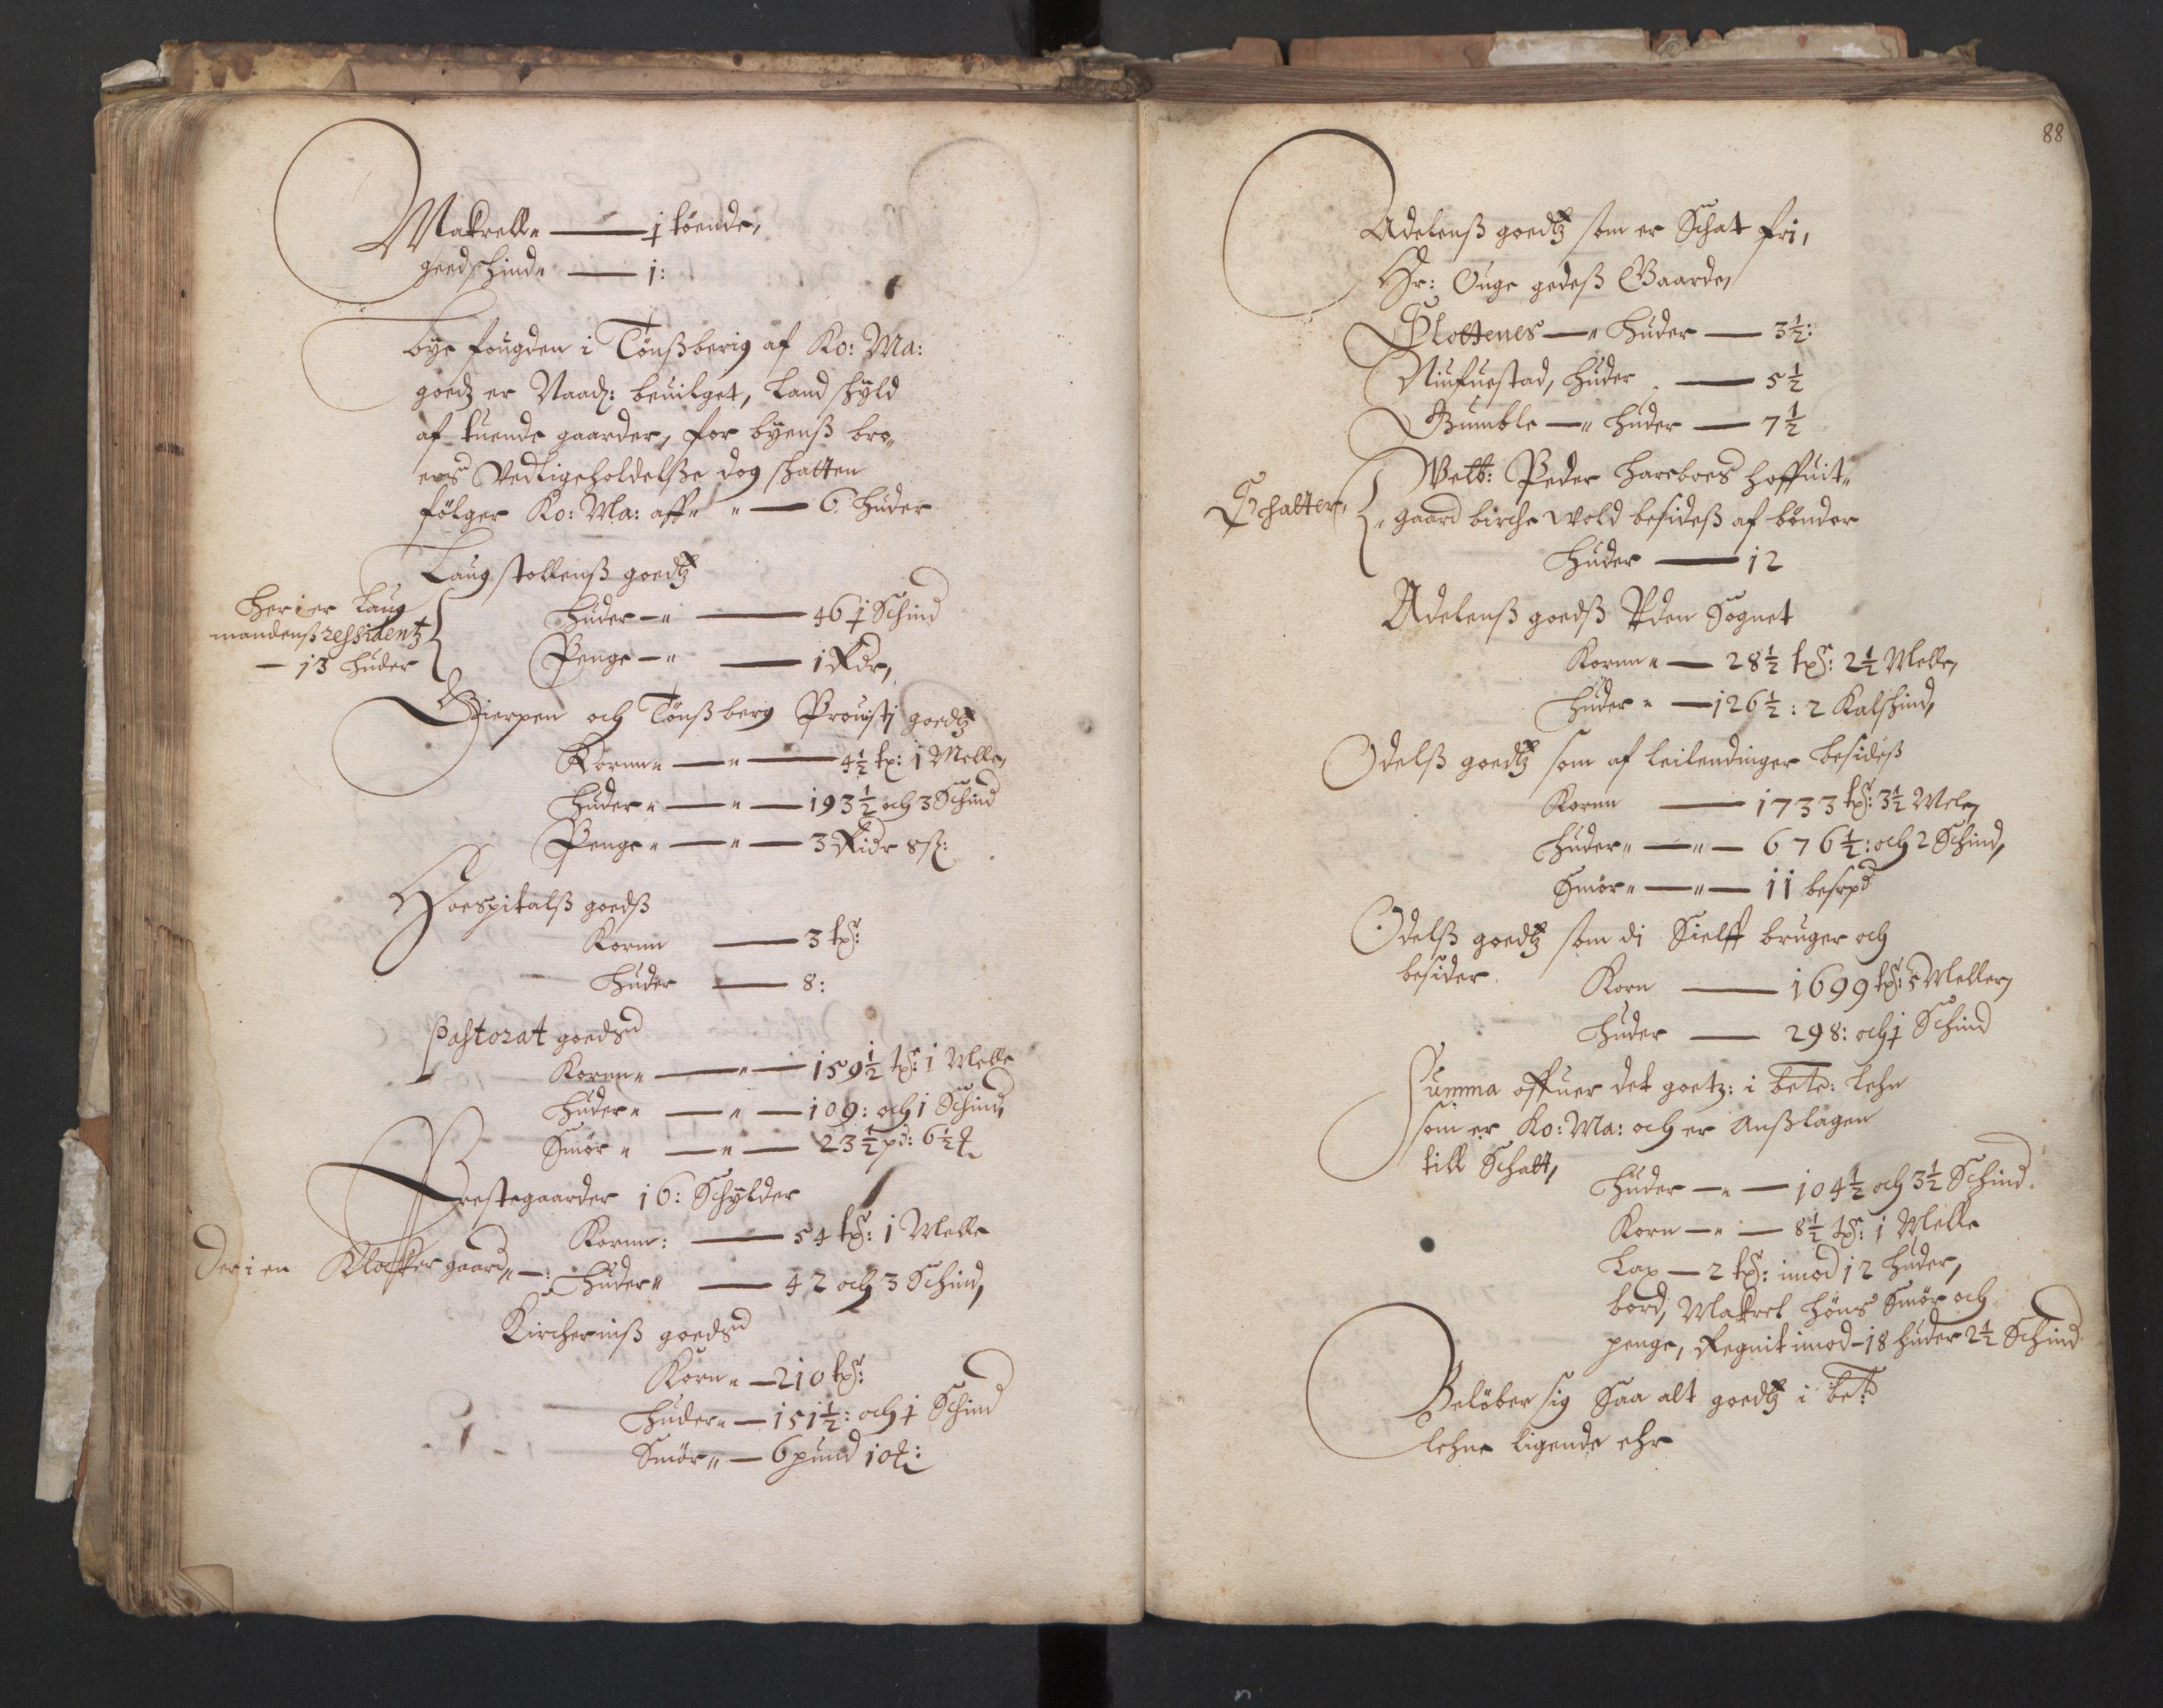 Makrell„ — ½ töende,
geedschind„ — 1:
bye fougden i Tönsßberig af Ko: Ma:
goedz er Naad: beuilget, Landskyld
af tuende gaarder, for byenß bro„
ers Vedligeholdelße dog skatten
fölger Ko: Ma: aff„ „ — 6 huder
Laugstollenß goedtz
Her i er Laug
mandenß ressidentz
— 13 huder
Huder — „ — 46 ½ Schind
Penge — „ — 1 Rdr,
Gierpen och Tönßberg Prouistj goedtz
Kornn„ — „ — 4½ tp: 1 Melle,
Huder„ — „ — 193½ och 3 Schind
Penge„ — „ — 3 Ridr 8ß:
Hoespitalß goedß
Kornn — 3 tpr:
Huder — 8:
Pastorat goeds
Kornn„ — „ — 159½ tpr: 1 Melle
Huder„ — „ — 109: och 1 Schind,
Smör„ — „ — 23½ pd: 6½ ℔
Prestegaarder 16: Schylder
Kornn: — 54 tpr: 1 Melle
Der i en Klocker gaard„ —: Huder„ — 42 och 3 Schind,
Kircherniß goeds
Korn„ — 210 tpr:
Huder„ — 151½: och ½ Schind
Smör„ — 6 pund 10 ℔:
88
Adelenß goedtz som er Schat fri,
Hr: Ouge gedeß Gaarde,
Slottenes — „ Huder — 3½:
Niufuestad, huder — 5½
Gumble — „ huder — 7½
Schatter,
Welb: Peder harboes hoffuit„
„gaard birche wold besideß af bönder
Huder — 12
Adelenß goedß Vden Sognet
Kornn„ — 28½ tpr: 2½ Melle,
Huder„ — 126½: 2 Kalschind,
Odelß goedtz som af leilendinger besideß
Kornn — 1733 tpr: 3½ Mele,
Huder„ — „ — 676½: och 2 Schind,
Smör„ — „ — 11 besrpd
Odelß goedtz som di Sielff bruger och
besider
Korn — 1699 tpr: 5 Meller,
Huder — 298: och ½ Schind
Summa offuer det goetz: i bete: Lehn
som er Ko: Ma: och er Anßlagen
till Schatt,
Huder — „ — 104½ och 3½ Schind.
Korn — „ — 8½ tpr: 1 Melle
Lax — 2 tpr: imod 12 huder,
bord, Makrel höns Smör och
penge, Regnit imod — 18 huder 2½ Schind
Belöber sig Saa alt goedtz i bete:
lehne ligende ehr